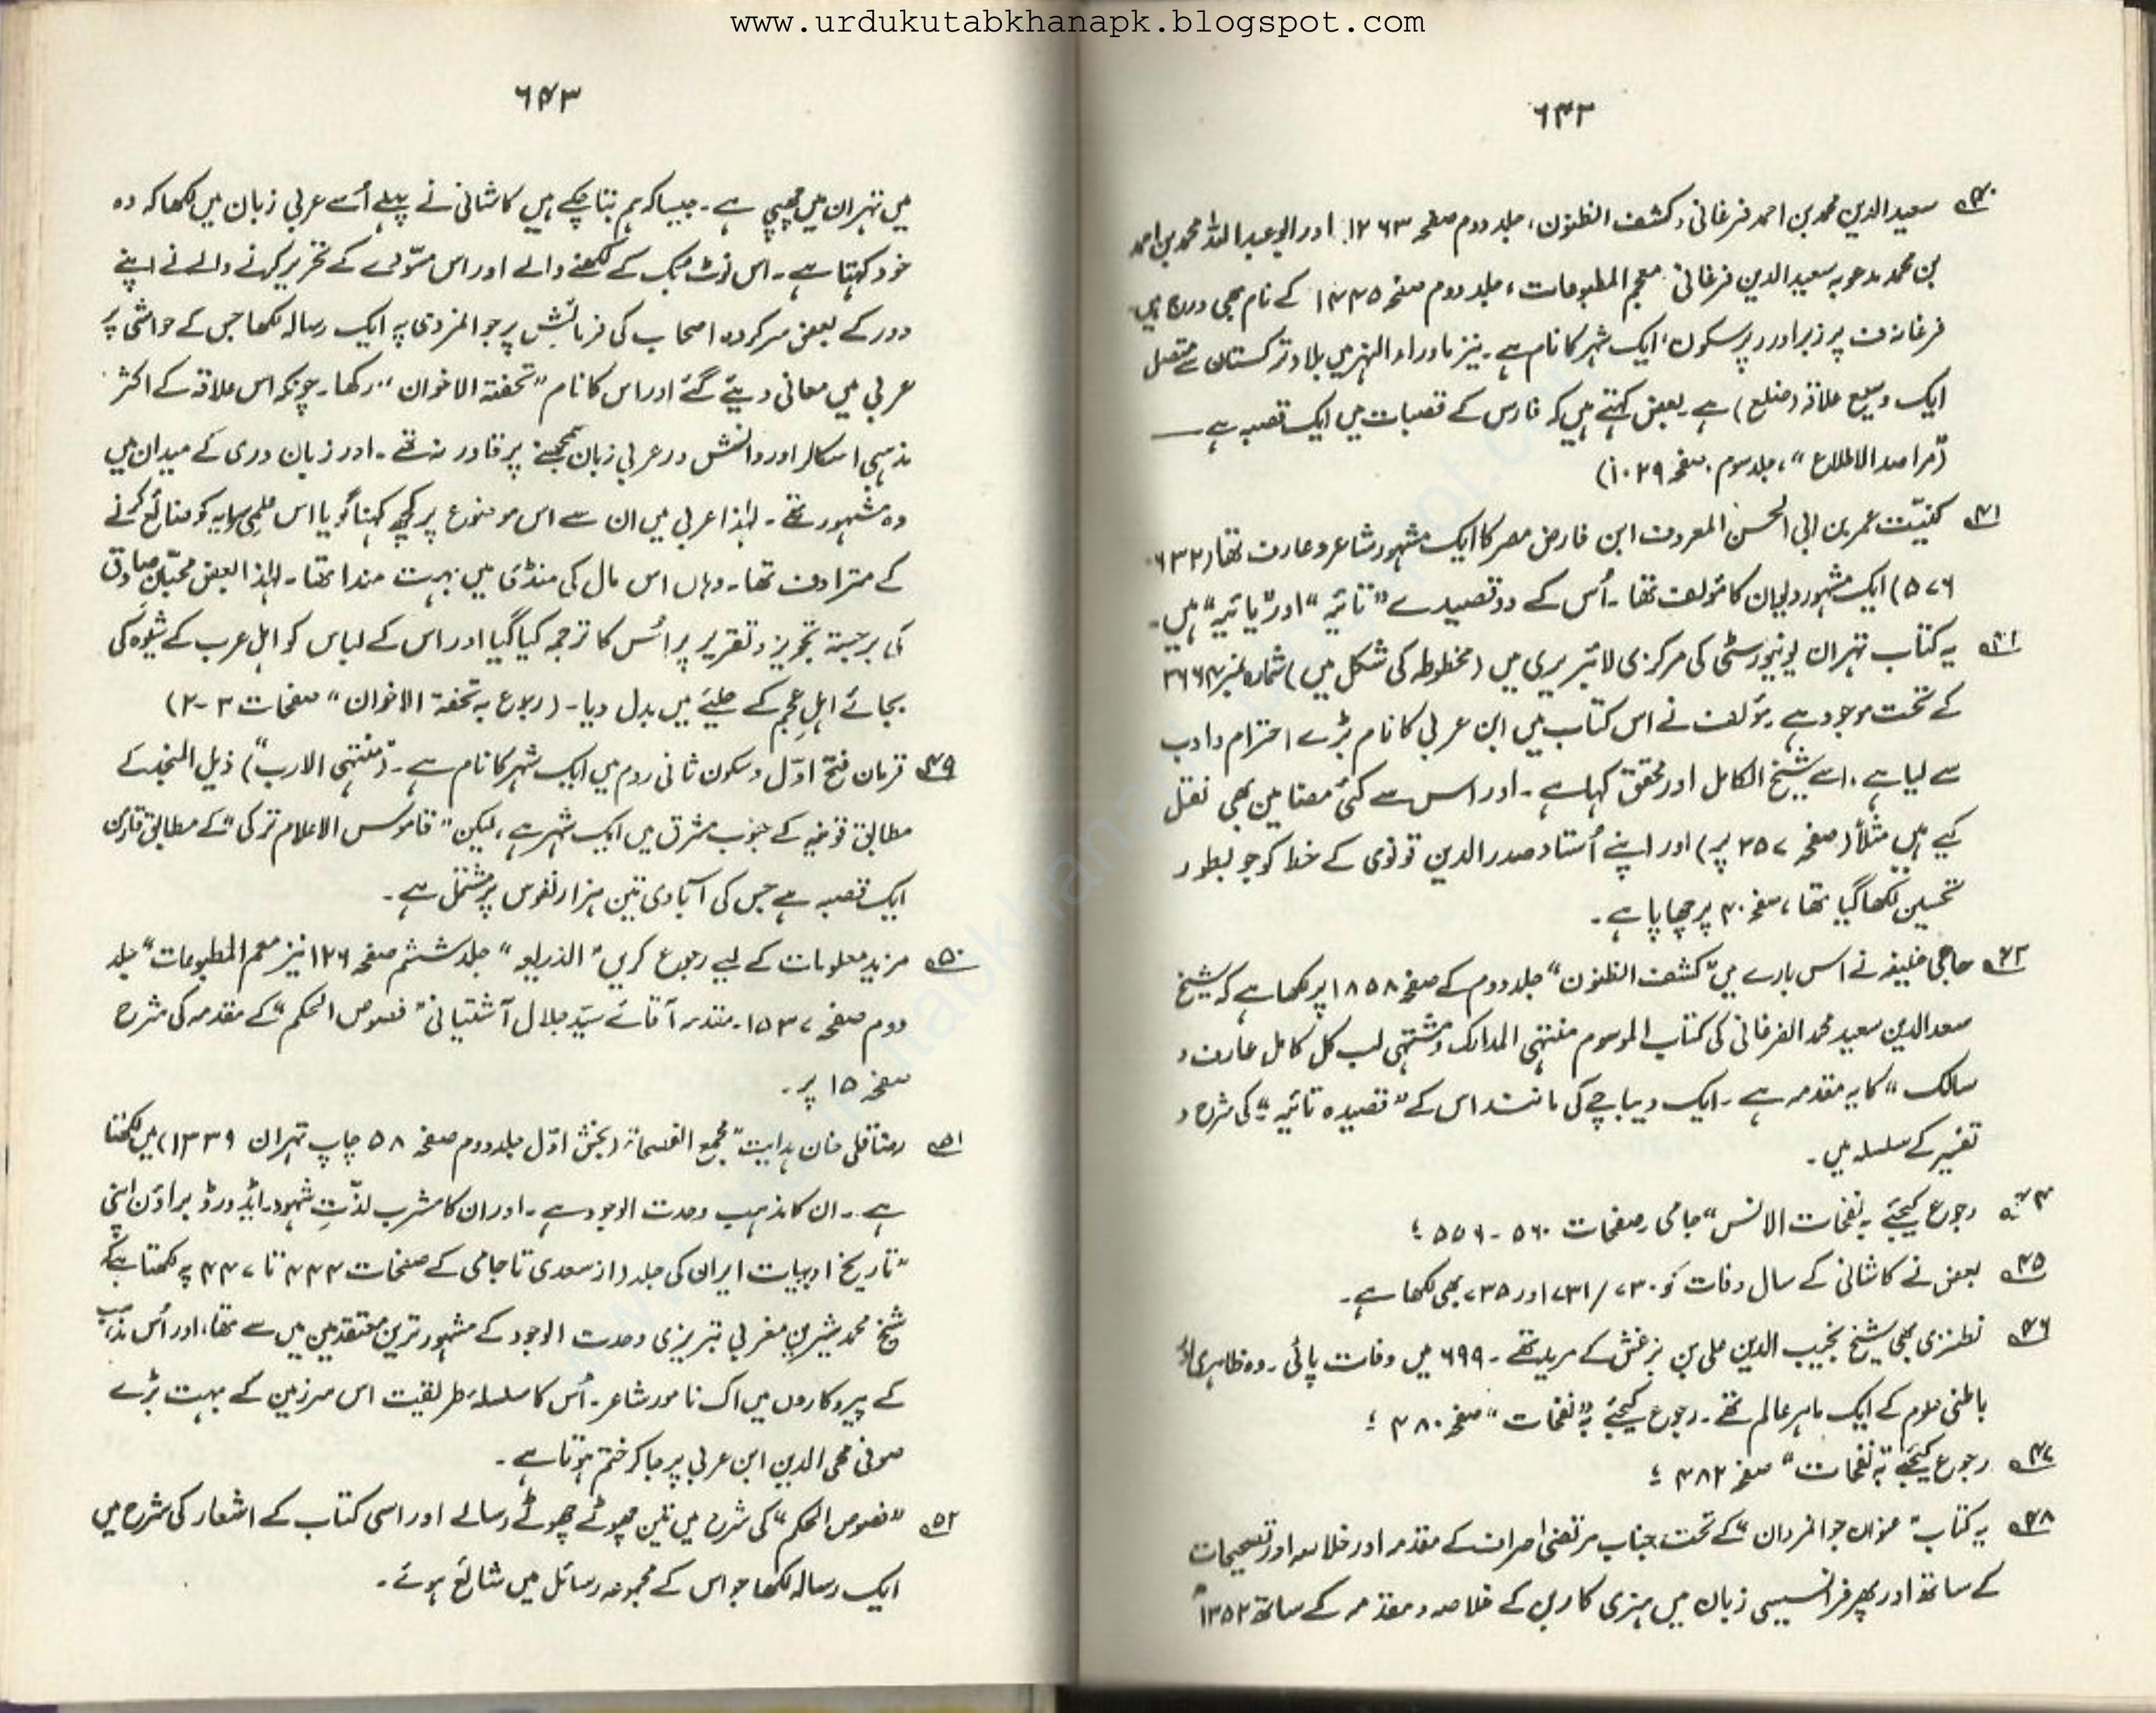 www.urdukutabkhanapk.blogspot.com
۶۴۲
۴۰ سعید الدین محمد بن احمد فرغانی، کشف الظنون، جلد دوم صفحہ ۱۲۶۳. اور ابو عبد اللہ محمد بن احمد
بن محمد مدعو بہ سعید الدین فرغانی معجم المطبوعات، جلد دوم صفحہ ۱۴۴۵ کے نام بھی درج ہیں۔
فرغانہ ف پر زبر اور ر پر سکون، ایک شہر کا نام ہے۔ نیز ماوراء النہر میں بلاد ترکستان سے متصل
ایک وسیع علاقہ (ضلع) ہے۔ بعض کہتے ہیں کہ فارس کے قصبات میں ایک قصبہ ہے ــــ
("مراصد الاطلاع"، جلد سوم. صفحہ ۱۰۲۹)
۴۱ کنیّت عمر بن ابی الحسن المعروف ابن فارض مصر کا ایک مشہور شاعر و عارف تھا (۶۳۲۔
۵۷۶) ایک مشہور دیوان کا مؤلف تھا۔ اُس کے دو قصیدے "تائیہ" اور "یائیہ" ہیں۔
۴۲ یہ کتاب تہران یونیورسٹی کی مرکزی لائبریری میں (مخطوطہ کی شکل میں) شمارہ نمبر ۳۶۶۴
کے تحت موجود ہے۔ مؤلف نے اس کتاب میں ابن عربی کا نام بڑے احترام و ادب
سے لیا ہے۔ اسے شیخ الکامل اور محقق کہا ہے۔ اور اس سے کئی مضامین بھی نقل
کیے ہیں مثلاً (صفحہ ۲۵۷ پر) اور اپنے اُستاد صدر الدین قونوی کے خط کو جو بطور
تحسین لکھا گیا تھا، صفحہ ۴۰ پر چھاپا ہے۔
۴۳ حاجی خلیفہ نے اس بارے میں "کشف الظنون" جلد دوم کے صفحہ ۱۸۵۸ پر لکھا ہے کہ شیخ
سعد الدین سعید محمد الفرغانی کی کتاب الموسوم منتہی المدارک و مشتہی لب کل کامل عارف و
سالک" کا یہ مقدمہ ہے۔ ایک دیباچے کی مانند اس کے "قصیدہ تائیہ" کی شرح و
تفسیر کے سلسلہ میں۔
۴۴ رجوع کیجئے بہ نفحات الانس" جامی، صفحات ۵۶۰ - ۵۵۶ ؛
۴۵ بعض نے کاشانی کے سال وفات کو ۷۳۰ / ۷۳۱ اور ۷۳۵ بھی لکھا ہے۔
۴۶ نطنزی بھی شیخ نجیب الدین علی بن بزغش کے مرید تھے۔ ۶۹۹ میں وفات پائی۔ وہ ظاہری اور
باطنی علوم کے ایک ماہر عالم تھے۔ رجوع کیجئے بہ "نفحات" صفحہ ۴۸۰ ؛
۴۷ رجوع کیجئے بہ "نفحات" صفحہ ۴۸۲ ؛
۴۸ یہ کتاب "عنوان جوانمردان" کے تحت جناب مرتضیٰ صراف کے مقدمہ اور خلاصہ اور تصحیحات
کے ساتھ اور پھر فرانسیسی زبان میں ہنری کاربن کے خلاصہ و مقدمہ کے ساتھ ۱۳۵۲
۶۴۳
میں تہران میں چھپی ہے۔ جیسا کہ ہم بتا چکے ہیں کاشانی نے پہلے اُسے عربی زبان میں لکھا کہ وہ
خود کہتا ہے۔ اس نوٹ بک کے لکھنے والے اور اس مسوّدے کے تحریر کرنے والے نے اپنے
دور کے بعض سرکردہ اصحاب کی فرمائش پر جوانمردی پہ ایک رسالہ لکھا جس کے حواشی پر
عربی میں معانی دیئے گئے اور اس کا نام "تحفتہ الاخوان" رکھا۔ چونکہ اس علاقہ کے اکثر
مذہبی اسکالر اور دانشور عربی زبان سمجھنے پر قادر نہ تھے۔ اور زبان دری کے میدان میں
وہ مشہور تھے۔ لہٰذا عربی میں ان سے اس موضوع پر کچھ کہنا گویا اس علمی سرمایہ کو ضائع کرنے
کے مترادف تھا۔ وہاں اس مال کی منڈی میں بہت مندا تھا۔ لہٰذا بعض محبّانِ صادق
کی برجستہ تجویز و تقریر پر اُس کا ترجمہ کیا گیا اور اس کے لباس کو اہل عرب کے شیوہ کی
بجائے اہلِ عجم کے حلیئے میں بدل دیا۔ (رجوع بہ تحفۃ الاخوان" صفحات ۳-۲)
۴۹ قرمان فتح اوّل و سکون ثانی روم میں ایک شہر کا نام ہے۔ ("منتہی الارب") ذیل المنجد کے
مطابق قونیہ کے جنوب مشرق میں ایک شہر ہے، لیکن "قاموس الاعلام ترکی" کے مطابق قارمن
ایک قصبہ ہے جس کی آبادی تین ہزار نفوس پر مشتمل ہے۔
۵۰ مزید معلومات کے لیے رجوع کریں "الذریعہ" جلد ششم صفحہ ۱۲۶ نیز معجم المطبوعات" جلد
دوم صفحہ ۱۵۳۷۔ مقدمہ آقائے سیّد جلال آشتیانی "فصوص الحکم" کے مقدمہ کی شرح
صفحہ ۱۵ پر۔
۵۱ رضا قلی خان ہدایت "مجمع الفصحاء (بخش اوّل جلد دوم صفحہ ۵۸ چاپ تہران ۱۳۳۹) میں لکھتا
ہے۔ ان کا مذہب وحدت الوجود ہے۔ اور ان کا مشرب لذّتِ شہود۔ ایڈورڈ براؤن اپنی
"تاریخ ادبیات ایران کی جلد (از سعدی تا جامی کے صفحات ۴۴۴ تا ۴۴۷ پہ لکھتا ہے کہ
شیخ محمد شیرین مغربی تبریزی وحدت الوجود کے مشہور ترین معتقدین میں سے تھا، اور اُس مذہب
کے پیروکاروں میں اک نامور شاعر۔ اُس کا سلسلۂ طریقیت اس سرزمین کے بہت بڑے
صوفی محی الدین ابن عربی پر جا کر ختم ہوتا ہے۔
۵۲ "فصوص الحکم" کی شرح میں تین چھوٹے چھوٹے رسالے اور اسی کتاب کے اشعار کی شرح میں
ایک رسالہ لکھا جو اس کے مجموعہ رسائل میں شائع ہوئے۔